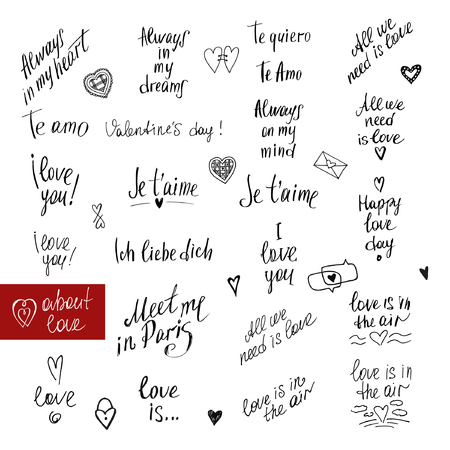 Always
in my heart
Always
in
my
dreams
Te quiero
Te Amo
All we
need is love
Te amo
Valentine's day!
Always
on my
mind
All we
need
is love
i love
you!
Je t'aime
Je t'aime
Happy
love
day
i love
you!
Ich liebe dich
I
love
you
about
love
Meet me
in Paris
All we
need is love
love is in
the air
love
love
is...
love is in
the air
love is in
the air